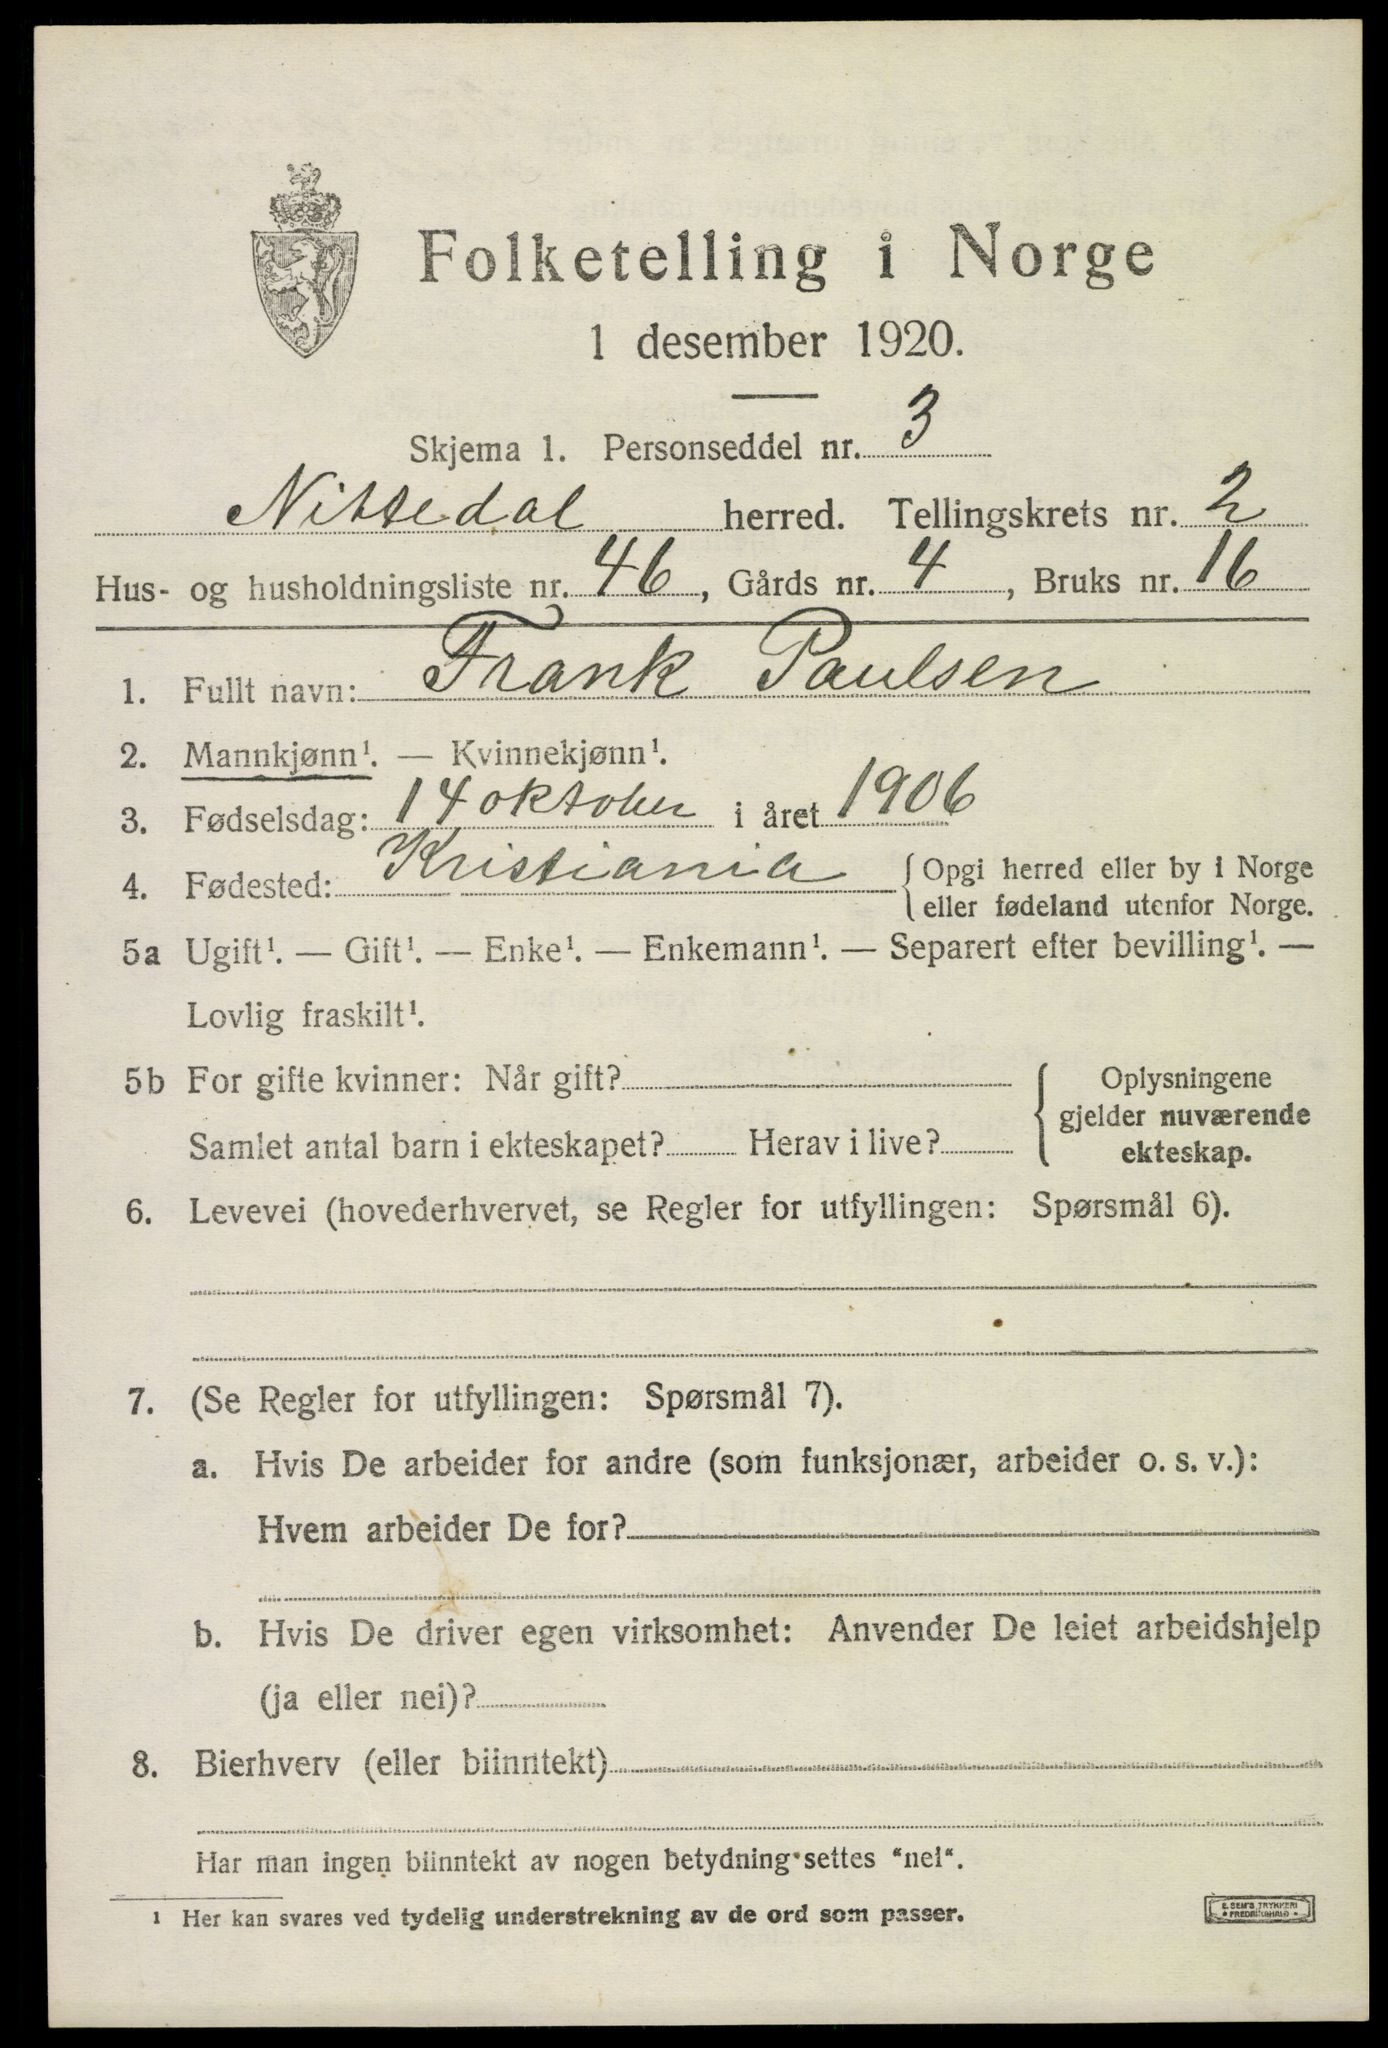 Folketelling i Norge
1 desember 1920.
Skjema 1. Personseddel nr. 3
Nittedal herred. Tellingskrets nr. 2
Hus- og husholdningsliste nr. 46, Gårds nr. 4, Bruks nr. 16
1. Fullt navn: Frank Paulsen
2. Mannkjønn¹. — Kvinnekjønn¹.
3. Fødselsdag: 14 oktober i året 1906
4. Fødested: Kristiania { Opgi herred eller by i Norge
eller fødeland utenfor Norge.
5a Ugift¹. — Gift¹. — Enke¹. — Enkemann¹. — Separert efter bevilling¹. —
Lovlig fraskilt¹.
5b For gifte kvinner: Når gift?
Samlet antal barn i ekteskapet? Herav i live?
Oplysningene
gjelder nuværende
ekteskap.
6. Levevei (hovederhvervet, se Regler for utfyllingen: Spørsmål 6).
7. (Se Regler for utfyllingen: Spørsmål 7).
a. Hvis De arbeider for andre (som funksjonær, arbeider o. s. v.):
Hvem arbeider De for?
b. Hvis De driver egen virksomhet: Anvender De leiet arbeidshjelp
(ja eller nei)?
8. Bierhverv (eller biinntekt)
Har man ingen biinntekt av nogen betydning settes “nei“.
¹ Her kan svares ved tydelig understrekning av de ord som passer.
E. SEM'S TRYKKERI
FREDRIKSHALD